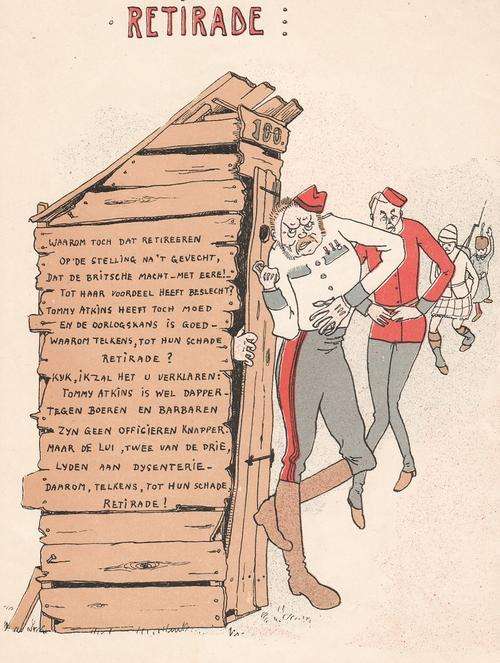 RETIRADE :
100.
WAAROM TOCH DAT RETIREEREN
OP 'DE STELLING NA 'T GEVECHT,
DAT DE BRITSCHE MACHT_MET EERE!_
TOT HAAR VOORDEEL HEEFT BESLECHT?
TOMMY ATKINS HEEFT TOCH MOED
EN DE OORLOGSKANS IS GOED_
WAAROM TELKENS, TOT HUN SCHADE
RETIRADE ?
KYK, IK ZAL HET U VERKLAREN:
TOMMY ATKINS IS WEL DAPPER_
TEGEN BOEREN EN BARBAREN
ZYN GEEN OFFICIEREN KNAPPER_
MAAR DE LUI, TWEE VAN DE DRIE,
LYDEN AAN DYSENTERIE_
DAAROM, TELKENS, TOT HUN SCHADE
RETIRADE !